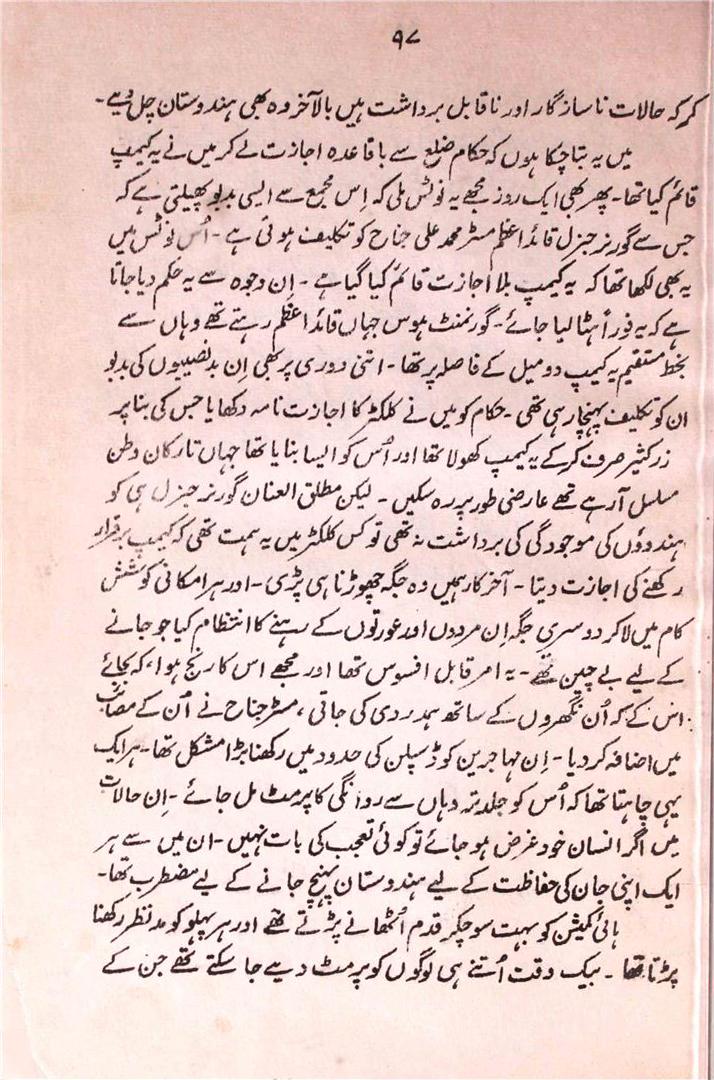 ۹۷
کر کہ حالات ناسازگار اور ناقابل برداشت ہیں بالآخر وہ بھی ہندوستان چل دیے۔
میں یہ بتا چکا ہوں کہ حکام ضلع سے باقاعدہ اجازت لے کر میں نے یہ کیمپ
قائم کیا تھا۔ پھر بھی ایک روز مجھے یہ نوٹس ملی کہ اِس مجمع سے ایسی بدبو پھیلتی ہے کہ
جس سے گورنر جنرل قائد اعظم مسٹر محمد علی جناح کو تکلیف ہوئی ہے۔ اُس نوٹس میں
یہ بھی لکھا تھا کہ یہ کیمپ بلا اجازت قائم کیا گیا ہے۔ اِن وجوہ سے یہ حکم دیا جاتا
ہے کہ یہ فوراً ہٹا لیا جائے۔ گورنمنٹ ہوس جہاں قائد اعظم رہتے تھے وہاں سے
بخط مستقیم یہ کیمپ دو میل کے فاصلہ پر تھا۔ اتنی دوری پر بھی اِن بدنصیبوں کی بدبو
ان کو تکلیف پہنچا رہی تھی۔ حکام کو میں نے کلکٹر کا اجازت نامہ دکھایا جس کی بنا پر
زر کثیر صرف کر کے یہ کیمپ کھولا تھا اور اُس کو ایسا بنایا تھا جہاں تارکان وطن
مسلسل آ رہے تھے عارضی طور پر رہ سکیں۔ لیکن مطلق العنان گورنر جنرل ہی کو
ہندوؤں کی موجودگی کی برداشت نہ تھی تو کس کلکٹر میں یہ ہمت تھی کہ کیمپ برقرار
رکھنے کی اجازت دیتا۔ آخر کار ہمیں وہ جگہ چھوڑنا ہی پڑی۔ اور ہر امکانی کوشش
کام میں لا کر دوسری جگہ اِن مردوں اور عورتوں کے رہنے کا انتظام کیا جو جانے
کے لیے بے چین تھے۔ یہ امر قابل افسوس تھا اور مجھے اس کا رنج ہوا، کہ بجائے
اس کے کہ اُن نگھروں کے ساتھ ہمدردی کی جاتی، مسٹر جناح نے اُن کے مصائب
میں اضافہ کر دیا۔ اِن مہاجرین کو ڈسپلن کی حدود میں رکھنا بڑا مشکل تھا۔ ہر ایک
یہی چاہتا تھا کہ اُس کو جلد تر وہاں سے روانگی کا پرمٹ مل جائے۔ اِن حالات
میں اگر انسان خود غرض ہو جائے تو کوئی تعجب کی بات نہیں۔ ان میں سے ہر
ایک اپنی جان کی حفاظت کے لیے ہندوستان پہنچ جانے کے لیے مضطرب تھا۔
ہائی کمیشن کو بہت سوچکر قدم اُٹھانے پڑتے تھے اور ہر پہلو کو مدنظر رکھنا
پڑتا تھا۔ بیک وقت اُتنے ہی لوگوں کو پرمٹ دیے جا سکتے تھے جن کے